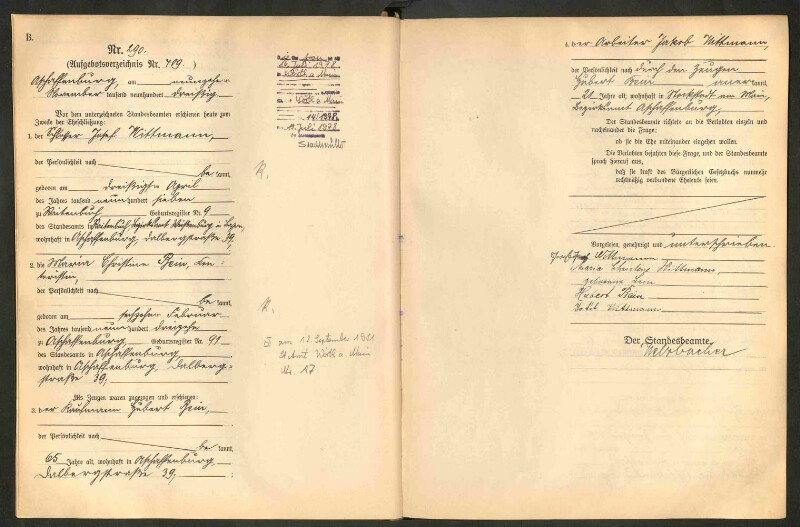 B.
Nr. 290.
(Aufgebotsverzeichnis Nr. 789.)
Aschaffenburg, am neunzehn
November tausend neunhundert dreißig
Vor dem unterzeichneten Standesbeamten erschienen heute zum
Zwecke der Eheschließung:
1. der Schlosser Josef Wittmann,
der Persönlichkeit nach
be kannt,
geboren am dreißigten April
des Jahres tausend neunhundert sieben
zu Geburtsregister Nr. 9
des Standesamts in
wohnhaft in Aschaffenburg, Dalbergstraße 39,
2. die Maria Christine Bein, Kon-
toristin,
der Persönlichkeit nach
be kannt,
geboren am sechzehn Februar
des Jahres tausend neunhundert dreizehn
zu Aschaffenburg Geburtsregister Nr. 91
des Standesamts in Aschaffenburg
wohnhaft in Aschaffenburg, Dalberg-
straße 39,
Als Zeugen waren zugezogen und erschienen:
3. der Kaufmann Hubert Bein,
der Persönlichkeit nach
be kannt,
65 Jahre alt, wohnhaft in Aschaffenburg,
Dalbergstraße 39,
Juli 1978
Wörth a. Main
Wörth a. Main
Juli 1978
G am 12. September 1931
St.Amt Wörth a. Main
Nr. 17
4. der Arbeiter Jakob Wittmann,
der Persönlichkeit nach durch den Zeugen
Hubert Bein anerkannt,
Jahre alt, wohnhaft in Stockstadt am Main,
Bezirksamt Aschaffenburg,
Der Standesbeamte richtete an die Verlobten einzeln und
nacheinander die Frage:
ob sie die Ehe miteinander eingehen wollen.
Die Verlobten bejahten diese Frage, und der Standesbeamte
sprach hierauf aus,
daß sie kraft des Bürgerlichen Gesetzbuchs nunmehr
rechtmäßig verbundene Eheleute seien.
Vorgelesen, genehmigt und unterschrieben
Josef Wittmann
Maria Christine Wittmann,
geborene Bein
Hubert Bein
Jakob Wittmann
Der Standesbeamte
Welzbacher